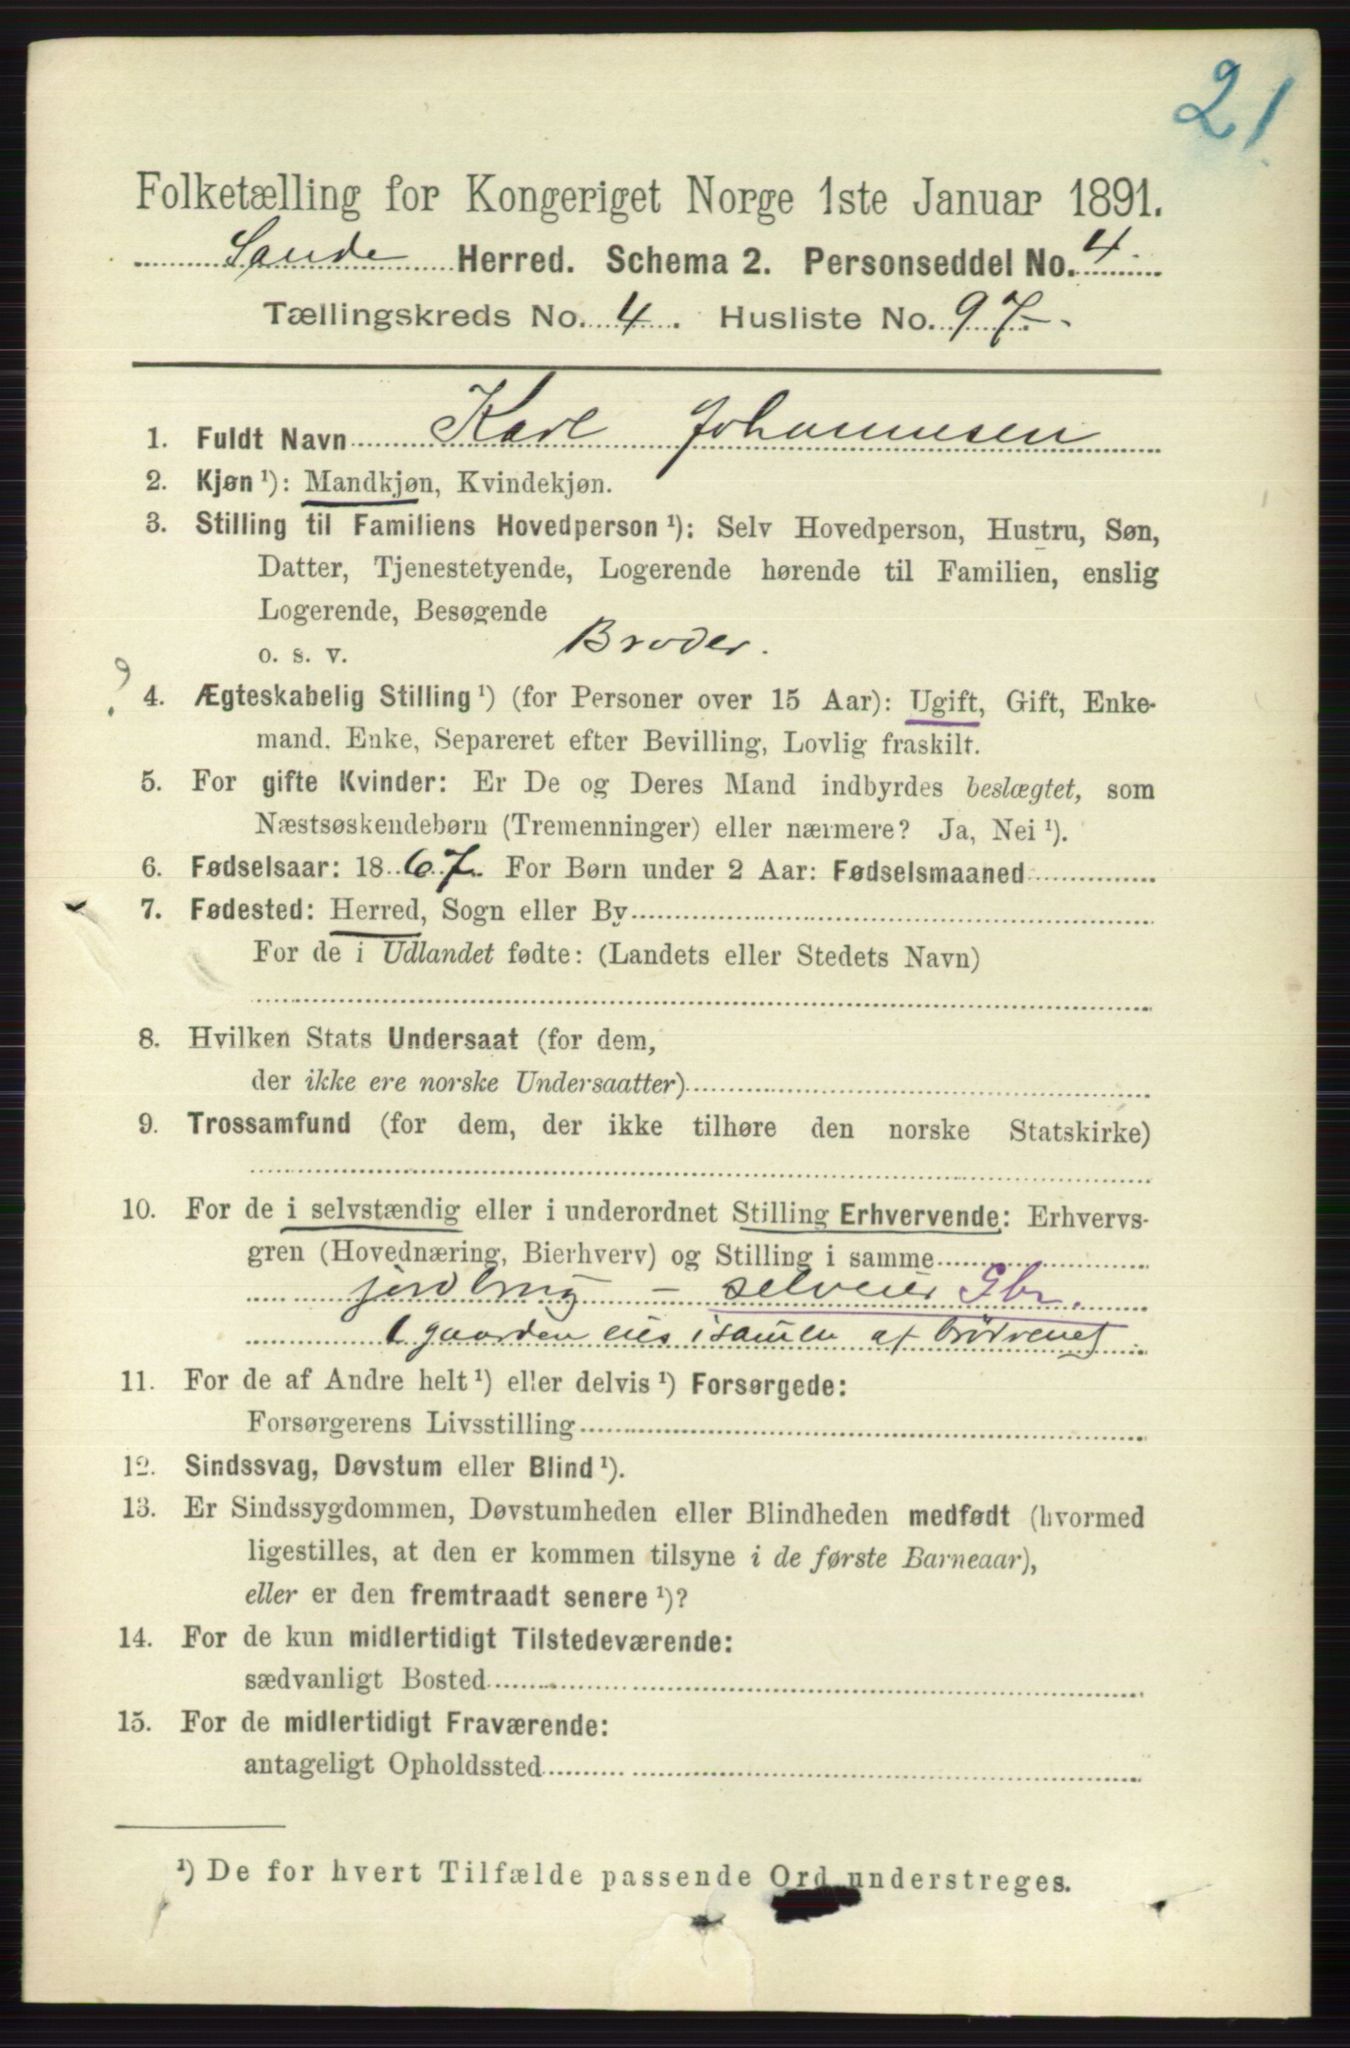 21
Folketælling for Kongeriget Norge 1ste Januar 1891.
Sande Herred. Schema 2. Personseddel No. 4
Tællingskreds No. 4. Husliste No. 97.
1. Fuldt Navn Karl Johannesen
2. Kjøn ¹): Mandkjøn, Kvindekjøn.
3. Stilling til Familiens Hovedperson ¹): Selv Hovedperson, Hustru, Søn,
Datter, Tjenestetyende, Logerende hørende til Familien, enslig
Logerende, Besøgende
o. s. v. Broder.
4. Ægteskabelig Stilling ¹) (for Personer over 15 Aar): Ugift, Gift, Enke-
mand, Enke, Separeret efter Bevilling, Lovlig fraskilt.
5. For gifte Kvinder: Er De og Deres Mand indbyrdes beslægtet, som
Næstsøskendebørn (Tremenninger) eller nærmere? Ja, Nei ¹).
6. Fødselsaar: 1867. For Børn under 2 Aar: Fødselsmaaned
7. Fødested: Herred, Sogn eller By
For de i Udlandet fødte: (Landets eller Stedets Navn)
8. Hvilken Stats Undersaat (for dem,
der ikke ere norske Undersaatter)
9. Trossamfund (for dem, der ikke tilhøre den norske Statskirke)
10. For de i selvstændig eller i underordnet Stilling Erhvervende: Erhvervs-
gren (Hovednæring, Bierhverv) og Stilling i samme
jordbrug – selveier Gbr.
(gaarden eies isamen af brødrene)
11. For de af Andre helt ¹) eller delvis ¹) Forsørgede:
Forsørgerens Livsstilling
12. Sindssvag, Døvstum eller Blind ¹).
13. Er Sindssygdommen, Døvstumheden eller Blindheden medfødt (hvormed
ligestilles, at den er kommen tilsyne i de første Barneaar),
eller er den fremtraadt senere ¹)?
14. For de kun midlertidigt Tilstedeværende:
sædvanligt Bosted
15. For de midlertidigt Fraværende:
antageligt Opholdssted
¹) De for hvert Tilfælde passende Ord understreges.